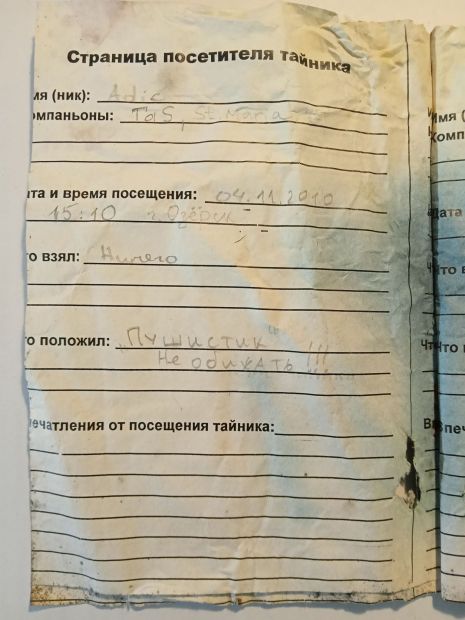 Страница посетителя тайника
мя (ник): Adic
омпаньоны: TaS, St. Maria
ата и время посещения: 04.11.2010
15:10 г. Озёрск
о взял: Ничего
о положил: "Пушистик" !!!
Не обижать
ечатления от посещения тайника:
Имя (
Комп
Дата
Что в
Что
Впеч